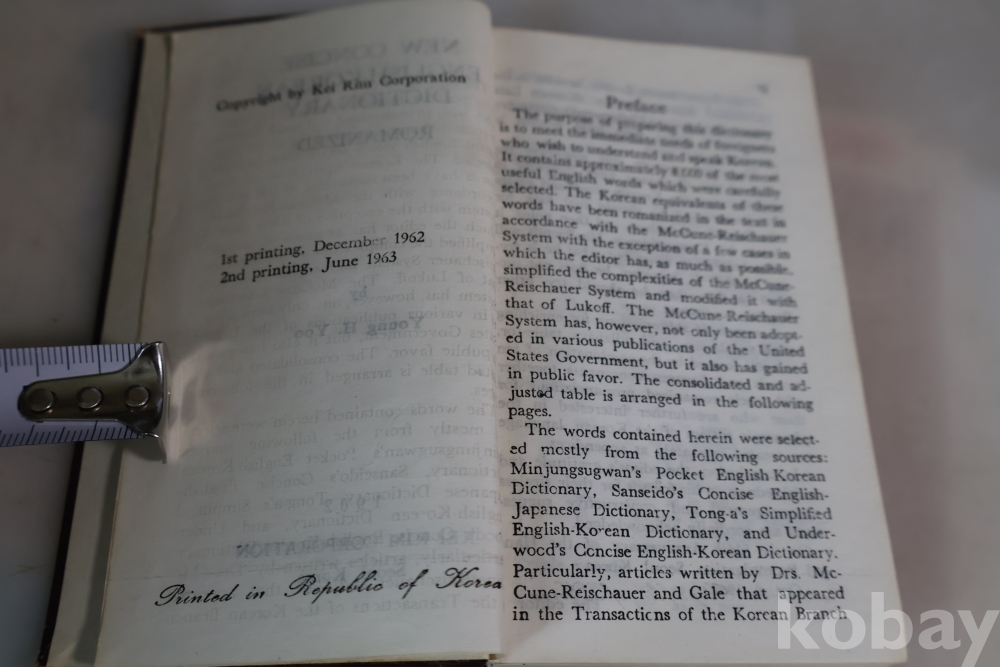 Copyright by Kei Rim Corporation
1st printing, December 1962
2nd printing, June 1963
Printed in Republic of Korea
Preface
The purpose of preparing this dictionary
is to meet the immediate needs of foreigners
who wish to understand and speak Korean.
It contains approximately 8,000 of the most
useful English words which were carefully
selected. The Korean equivalents of these
words have been romanized in the text in
accordance with the McCune-Reischauer
System with the exception of a few cases in
which the editor has, as much as possible,
simplified the complexities of the McCune-
Reischauer System and modified it with
that of Lukoff. The McCune-Reischauer
System has, however, not only been adopt-
ed in various publications of the United
States Government, but it also has gained
in public favor. The consolidated and ad-
justed table is arranged in the following
pages.
The words contained herein were select-
ed mostly from the following sources:
Minjungsugwan's Pocket English-Korean
Dictionary, Sanseido's Concise English-
Japanese Dictionary, Tong-a's Simplified
English-Korean Dictionary, and Under-
wood's Concise English-Korean Dictionary.
Particularly, articles written by Drs. Mc-
Cune-Reischauer and Gale that appeared
in the Transactions of the Korean Branch
kobay